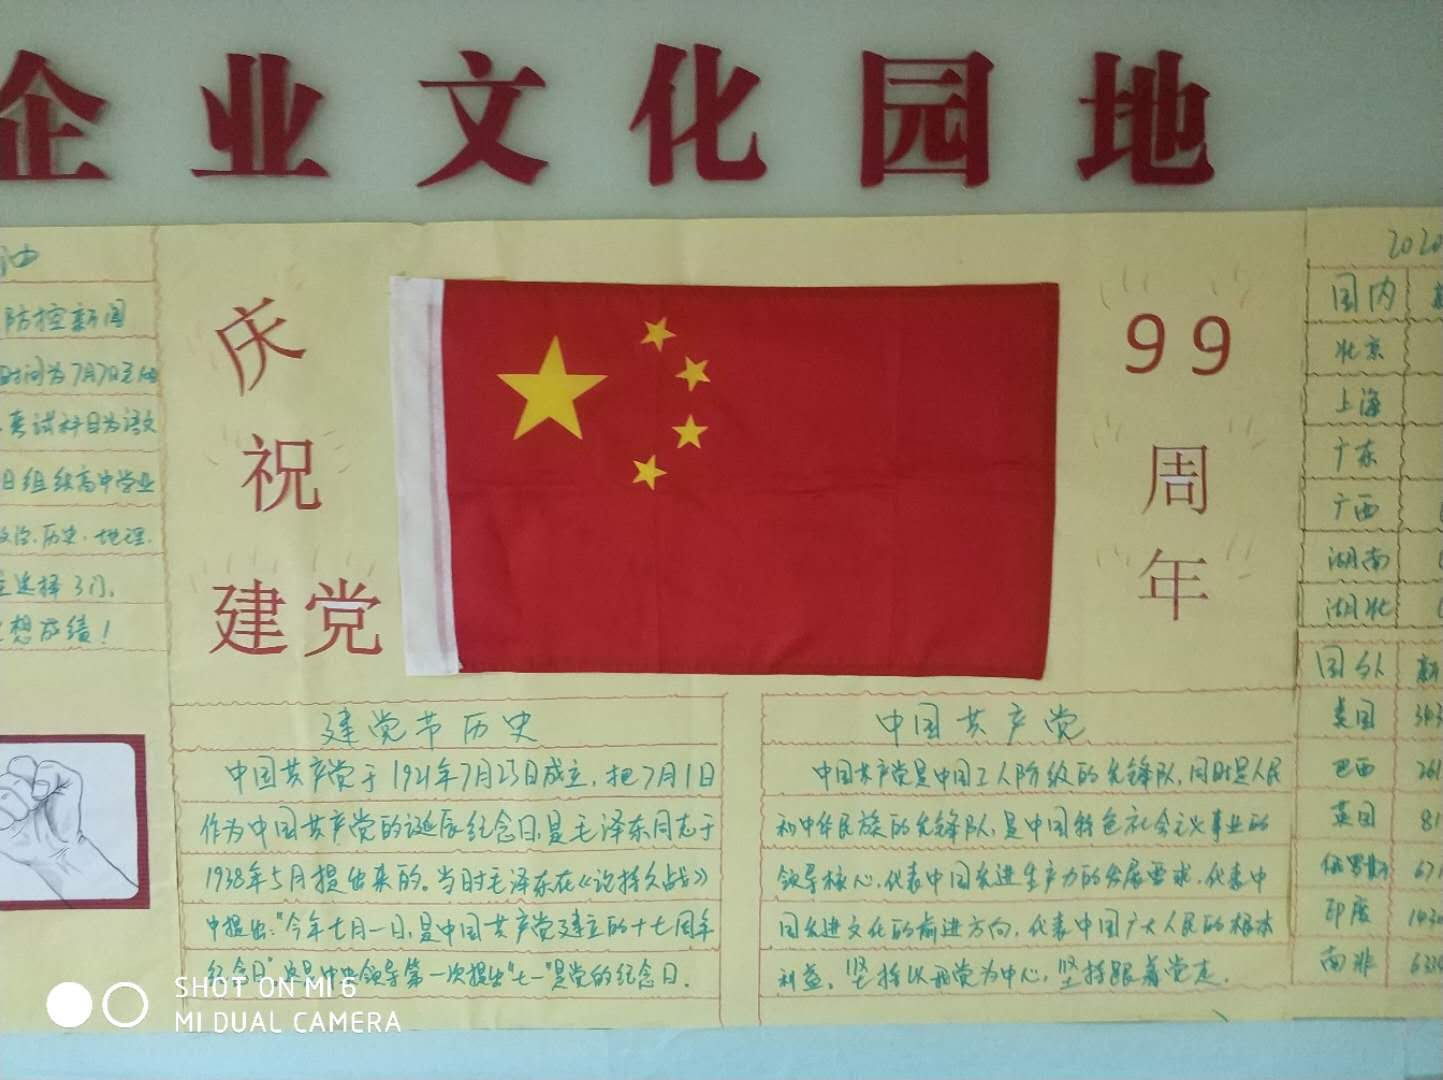 企业文化园地
防控新闻
时间为7月7日至
考试科目为语文
日组织高中学业
政治、历史、地理、
选择3门。
想成绩！
庆
祝
建党
99
周
年
建党节历史
中国共产党于1921年7月23日成立，把7月1日
作为中国共产党的诞辰纪念日，是毛泽东同志于
1938年5月提出来的。当时毛泽东在《论持久战》
中提出："今年七月一日，是中国共产党建立的十七周年
纪念日"这是中央领导第一次提出"七一"是党的纪念日.
中国共产党
中国共产党是中国工人阶级的先锋队，同时是人民
和中华民族的先锋队，是中国特色社会主义事业的
领导核心，代表中国先进生产力的发展要求，代表中
国先进文化的前进方向，代表中国广大人民的根本
利益。坚持以我党为中心，坚持跟着党走.
2020
国内
北京
上海
广东
广西
湖南
湖北
国外 新
美国 343
巴西 261
英国 81
俄罗斯 671
印度 1430
南非
SHOT ON MI 6
MI DUAL CAMERA